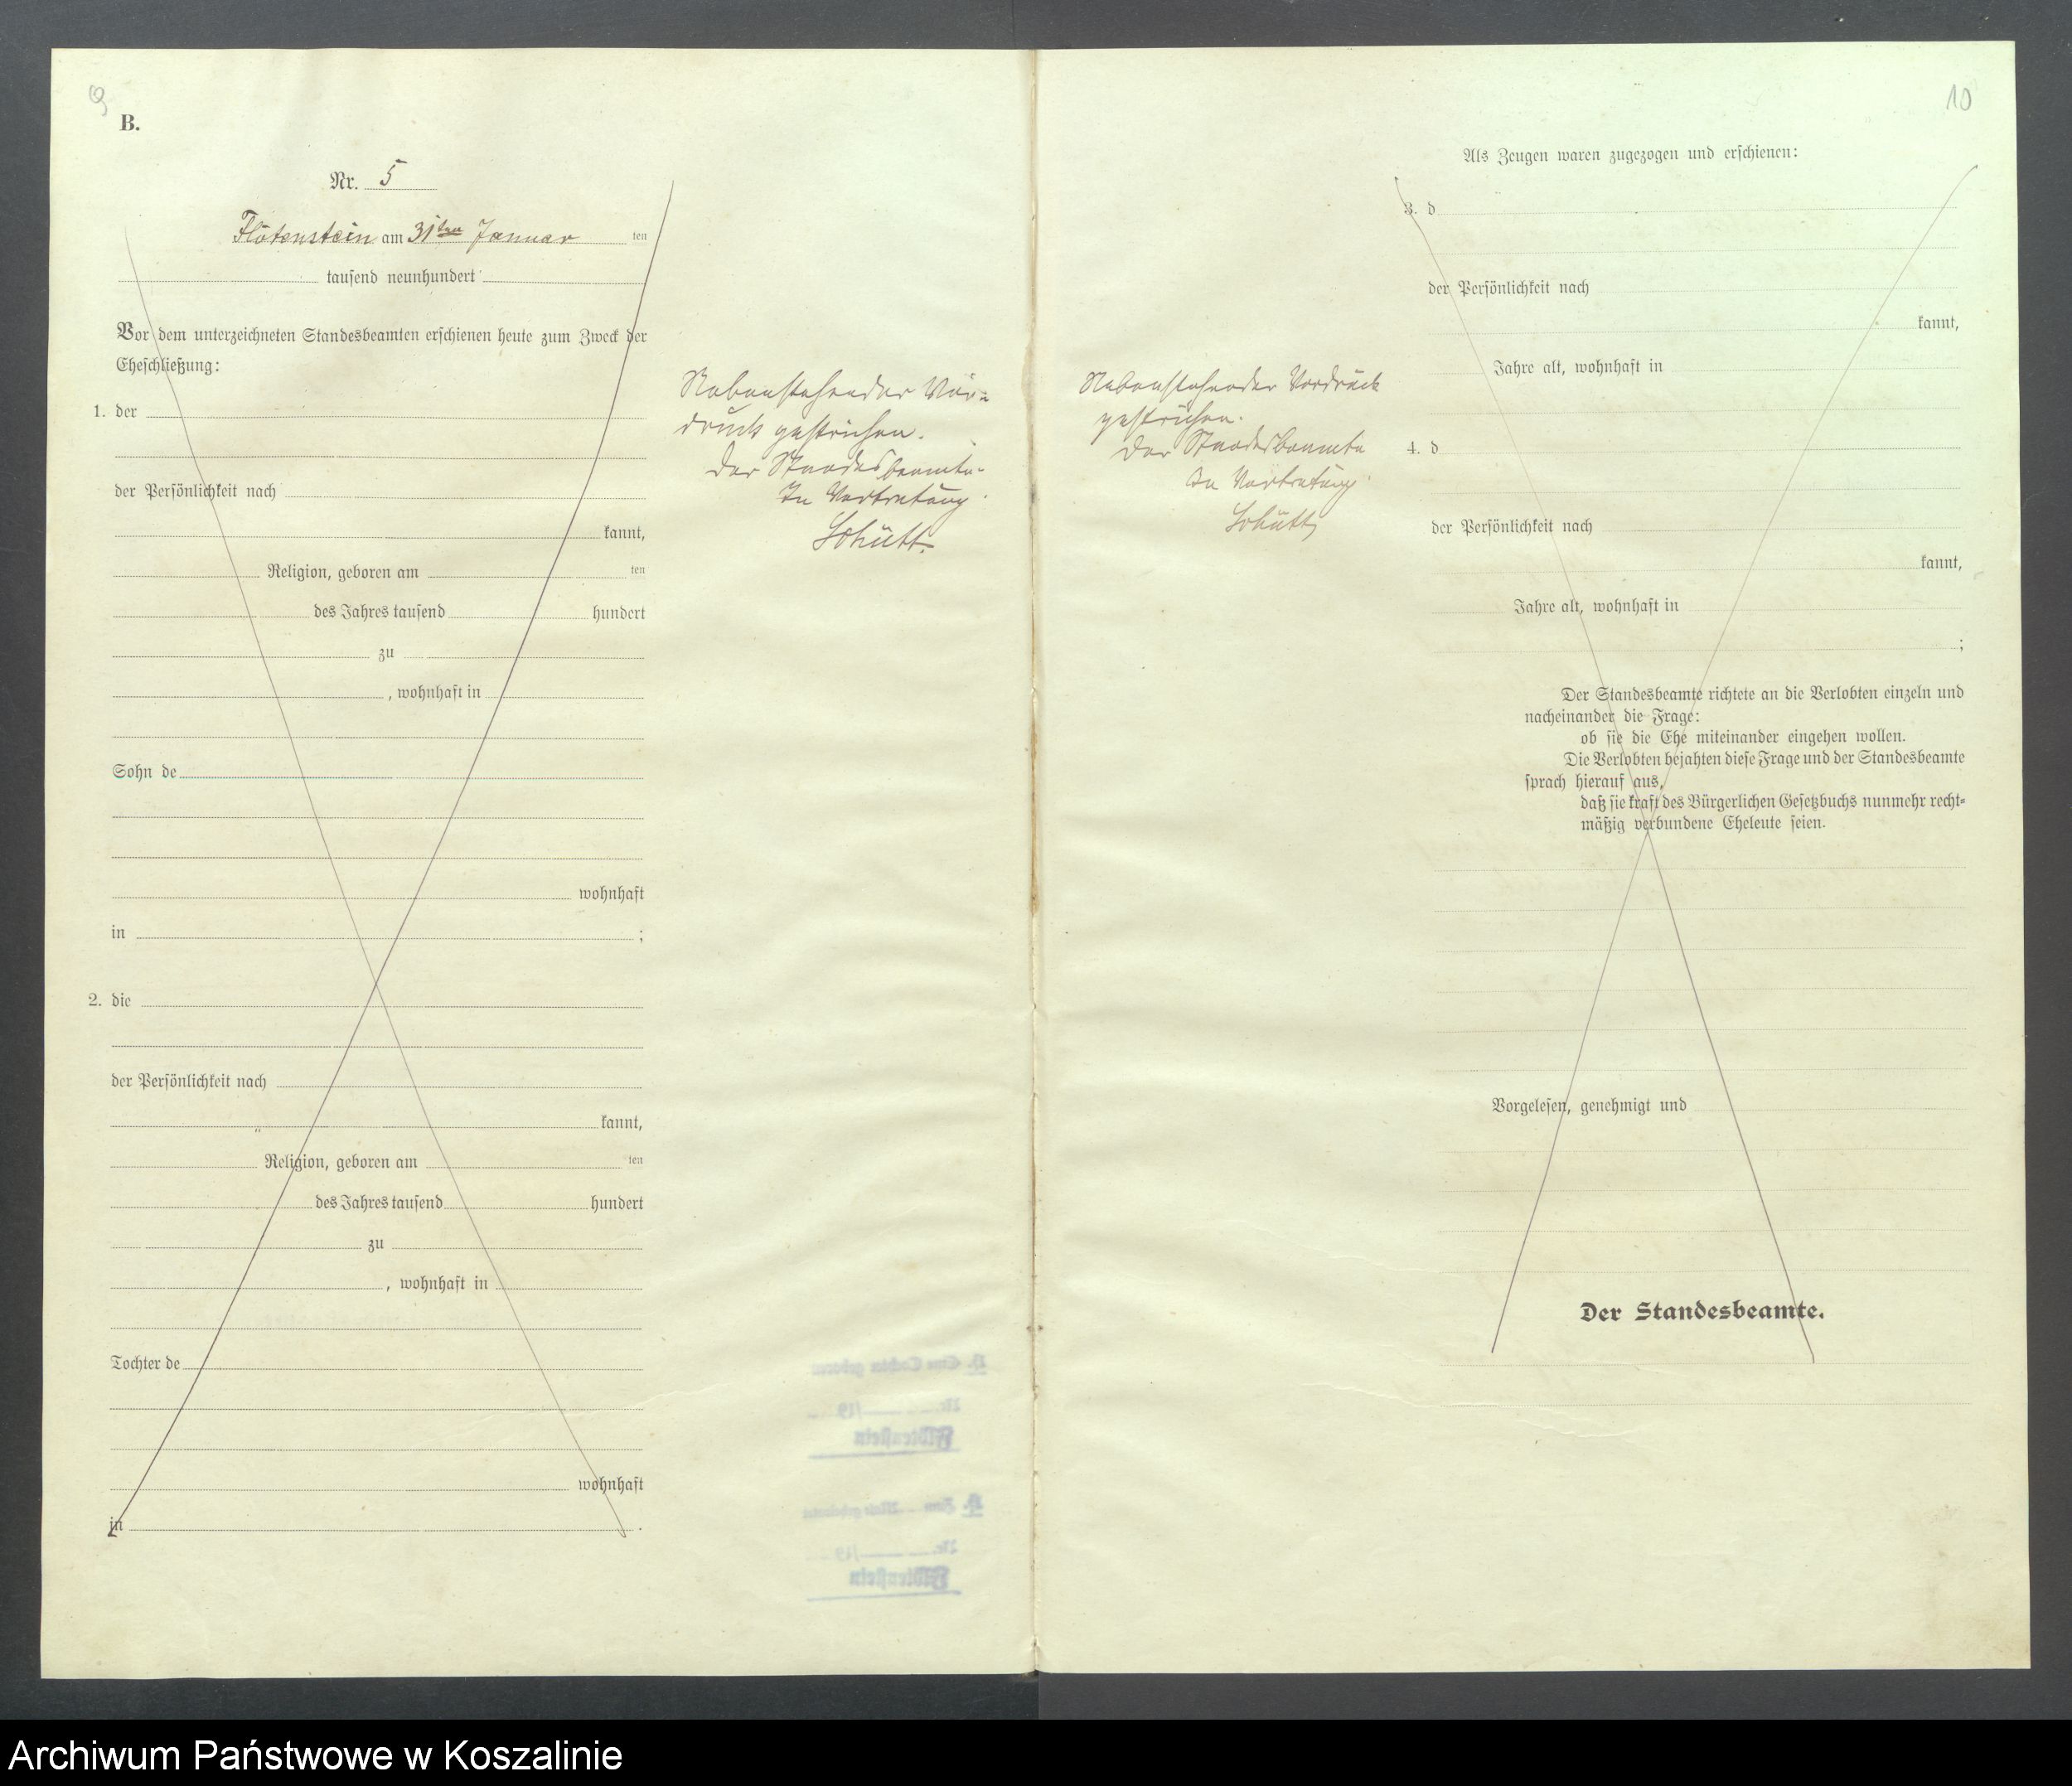 9
B.
Nr. 5
Flötenstein am 31ten Januar ten
tausend neunhundert
Vor dem unterzeichneten Standesbeamten erschienen heute zum Zweck der
Eheschließung:
1. der
der Persönlichkeit nach
kannt,
Religion, geboren am ten
des Jahres tausend hundert
zu
, wohnhaft in
Sohn de
wohnhaft
in ;
2. die
der Persönlichkeit nach
kannt,
Religion, geboren am ten
des Jahres tausend hundert
zu
, wohnhaft in
Tochter de
wohnhaft
in .
Nebenstehender Vor-
druck gestrichen.
Der Standesbeamte.
In Vertretung.
Schütt.
Nr. /19
Flötenstein
Nr. /19
Flötenstein
10
Als Zeugen waren zugezogen und erschienen:
3. d
der Persönlichkeit nach
kannt,
Jahre alt, wohnhaft in
4. d
der Persönlichkeit nach
kannt,
Jahre alt, wohnhaft in
;
Nebenstehender Vordruck
gestrichen.
Der Standesbeamte
In Vertretung
Schütt
Der Standesbeamte richtete an die Verlobten einzeln und
nacheinander die Frage:
ob sie die Ehe miteinander eingehen wollen.
Die Verlobten bejahten diese Frage und der Standesbeamte
sprach hierauf aus,
daß sie kraft des Bürgerlichen Gesetzbuchs nunmehr recht-
mäßig verbundene Eheleute seien.
Vorgelesen, genehmigt und
Der Standesbeamte.
Archiwum Państwowe w Koszalinie